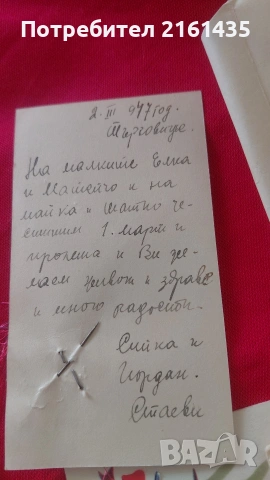 Потребител 2161435
2. III 947 год.
Търговище.
На малките Елка
и Матейчо и на
майка и татко че-
ститим 1. март и
пролета и Ви же-
лаем живот и здраве
и много радости.
Сийка и
Йордан.
Стаеви
BAZAR